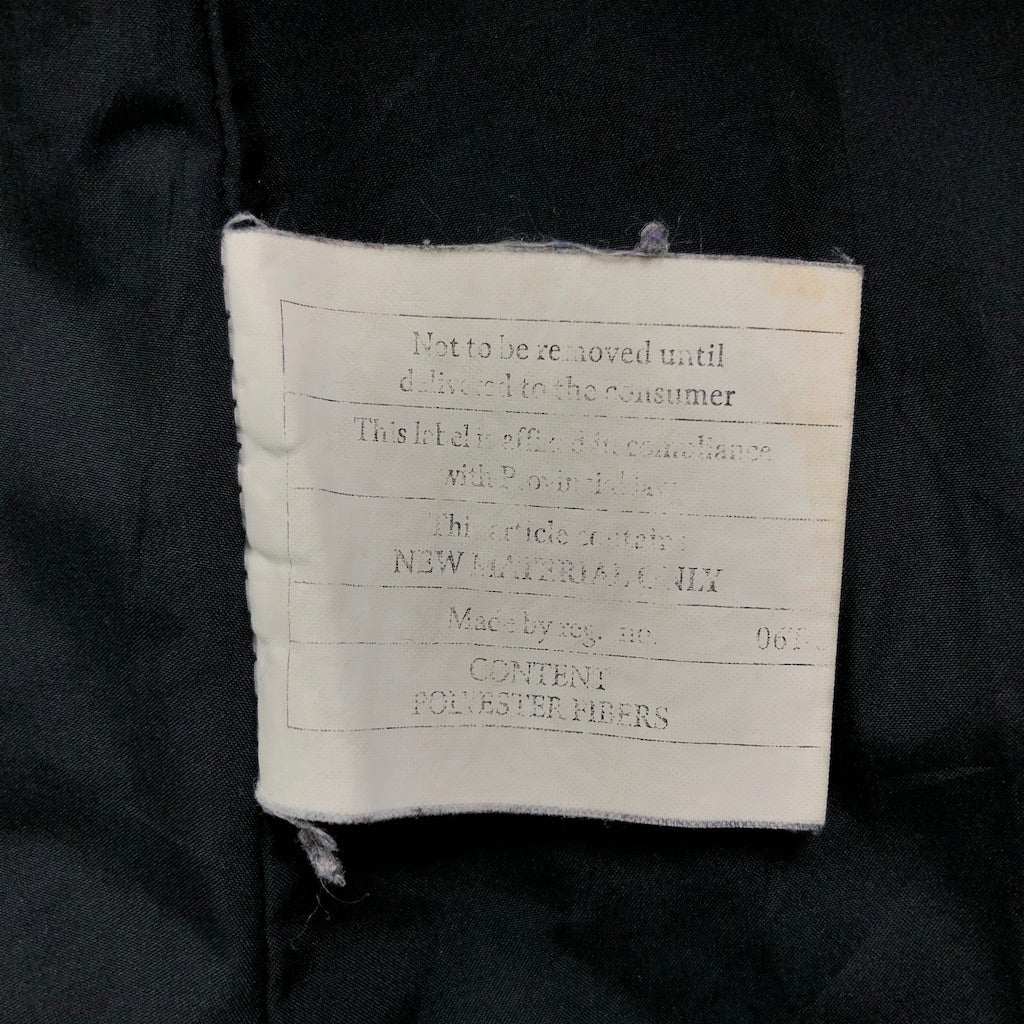 Not to be removed until
delivered to the consumer
This label is affixed in compliance
with Provincial law
This article contains
NEW MATERIAL ONLY
Made by reg. no. 06
CONTENT
POLYESTER FIBERS